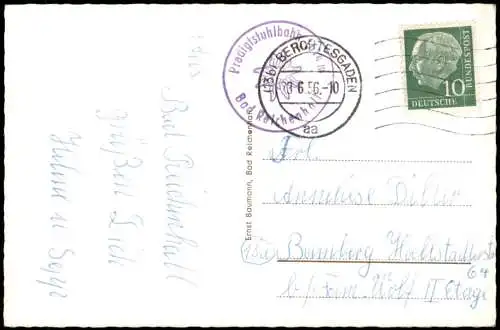 Bad Reichenhall
grüßen Dich
u Sepp
Ernst Baumann, Bad Reichenhall
Predigtstuhlbahn
Bad Reichenhall
(13b) BERCHTESGADEN
6.56.-10
aa
10
DEUTSCHE
BUNDESPOST
Frl.
Annelise
Bamberg Hallstadterstr
64
b/Fam. Wolf II Etage